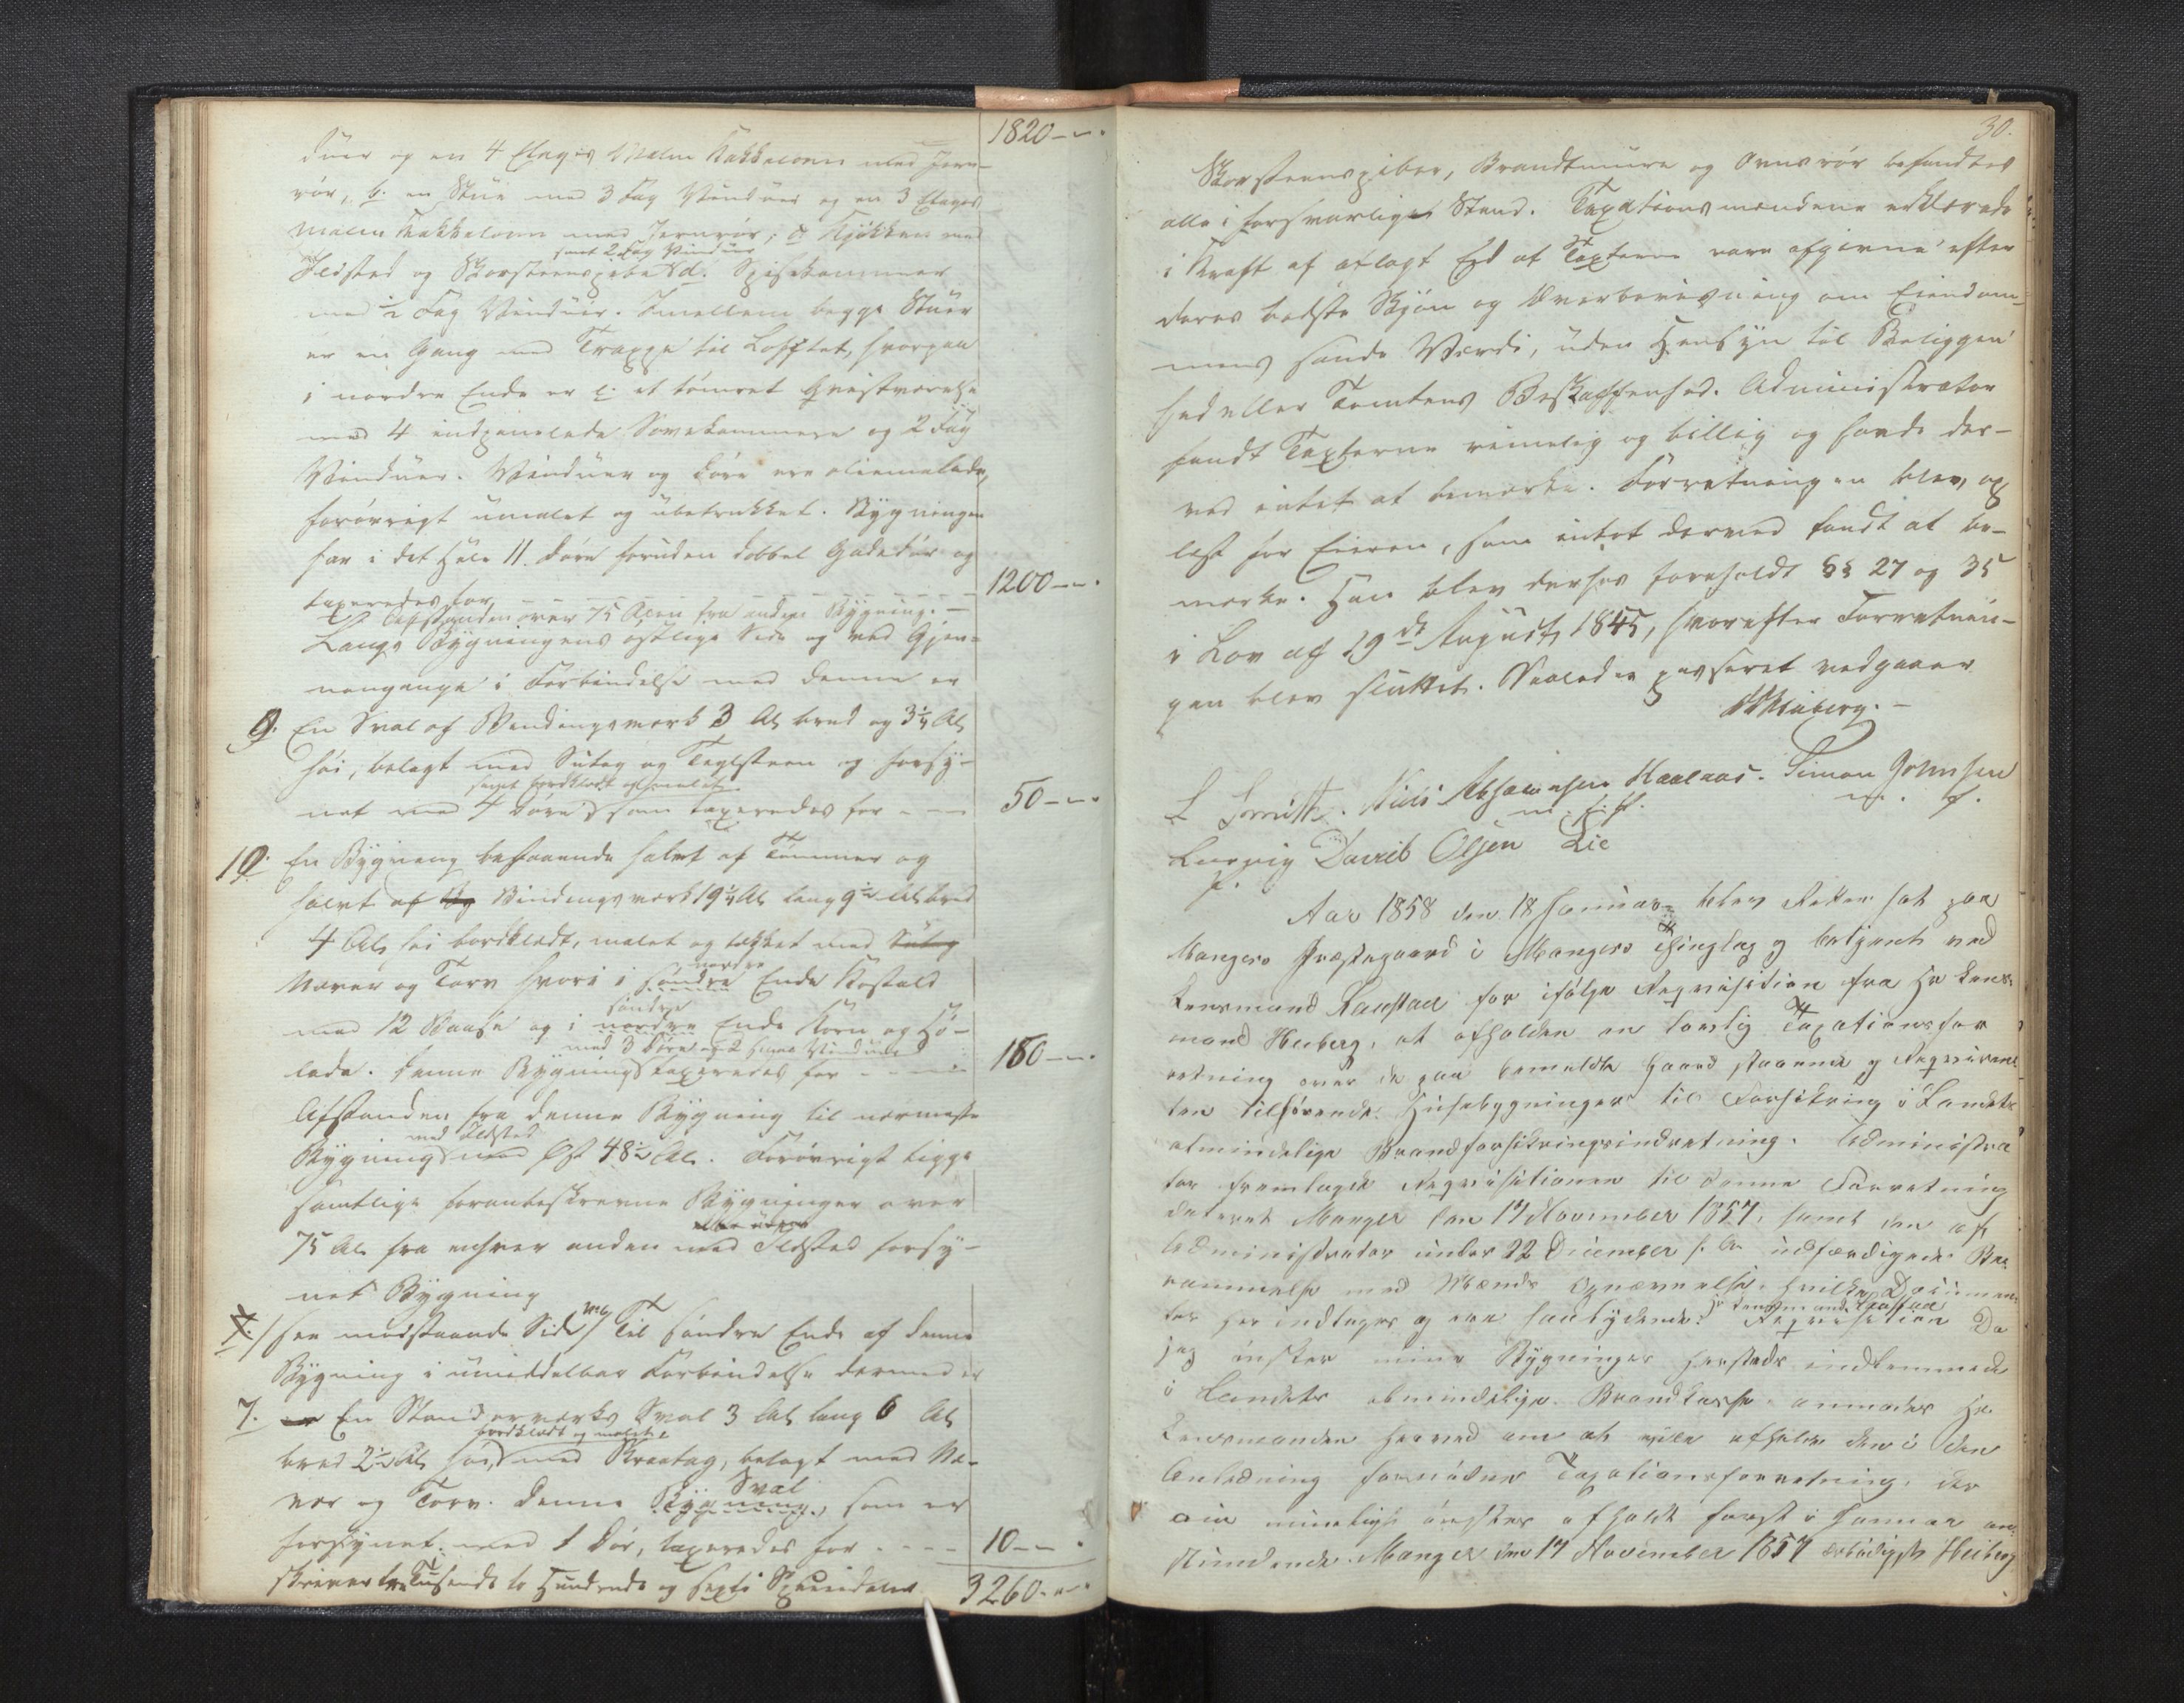 1820 – –
duer og en 4 Etages Malm Kakkelovn med Jern-
rör, b. en Stue med 3 Fag Vinduer og en 3 Etages
Malm Kakkelovn med Jernrör; c Kjökken med
samt 2 Fag Vinduer
Ildsted og Skorsteenspibe d. Spisekammer
med ½ Fag Vinduer. Imellem begge Stuer
er en Gang med Trappe til Lofftet, hvorpaa
i nordre Ende er e. et tömret Qvistværelse
med 4 indpanelede Sovekammere og 2 Fag
Vinduer. Vinduer og Döre ere oliemalede,
forövrigt umalet og ubetrukket. Bygningen
har i det Hele 11. Döre foruden dobbel Gadedör og
taxeredes for – – – – 1200 – –
Afstanden over 75 Alen fra anden Bygning. –
Langs Bygningens östlige Side og ved Gjen-
nemgange i Forbindelse med denne er
9. En Sval af Bindingsværk 3 Al bred og 3¼ Al
höi, belagt med Sutag og Teglsteen og forsy-
samt bordklædt og malet
net med 4 Döre som taxeredes for – – 50 – –
10. En Bygning bestaaende halvt af Tömmer og
halvt af Bindingsværk 19¼ Al lang 9½ Al bred
4 Al höi bordklædt, malet og tækket med Sutag
nordre
Næver og Torv hvori i söndre Ende Kostald
söndre
med 12 Baase og i nordre Ende Korn og Hö-
med 3 Döre og 2 smaa Vinduer
lade. Denne Bygning taxeredes for – – 180 – –
Afstanden fra denne Bygning til nærmeste
med Ildsted
Bygning mod Öst 48½ Al. Forövrigt ligge
samtlige foranbeskrevne Bygninger over
eller uden
75 Al fra enhver anden med Ildsted forsy-
net Bygning
/: see modstaaende Side / Til söndre Ende af denne
Bygning i umiddelbar Forbindelse dermed er
7. En Standerværks Sval 3 Al lang 6 Al
bordklædt og malet
bred 2½ Al höi, med Skraatag, belagt med Næ-
Sval
ver og Torv. Denne Bygning, som er
forsynet med 1 Dör, taxeredes for – – – 10 – –
skriver tre Tusende to Hundrede og sexti Speciedaler 3260 – –
30.
Skorsteenspiber, Brandmure og Ovnsrör befandtes
alle i forsvarligt Stand. Taxationsmændene erklærede
i Kraft af aflagt Eed at Taxterne vare afgivne efter
deres bedste Skjön og Overbeviisning om Eiendom-
mens sande Værdi, uden Hensyn til Beliggen-
hed eller Tomtens Beskaffenhed. Administrator
fandt Taxterne rimelig og billig og havde der-
ved intet at bemærke. Forretningen blev op
læst for Eieren, som intet derved fandt at be-
mærke. Han blev derhos foreholdt §§ 27 og 35
i Lov af 19de August 1845, hvorefter Forretnin-
gen blev sluttet. Saaledes passeret vedgaaer
Heiberg. –
L Smitt. Niels Absalonsen Kaalaas. Simon Johnsen
m. f. P. m. f.
Ludvig David Olsen Lie
P.
Aar 1858 den 18 Januar blev Retten sat paa
Mangers Præstegaard i Mangers Thinglag og betjent ved
Lensmand Laustad for ifölge Reqvisition fra Hr Lens-
mand Heiberg, at afholde en lovlig Taxationsfor
retning over de paa bemeldte Gaard staaende og Reqvirent-
ten tilhörende Husebygninger til Forsikring i Landets
almindelige Brandforsikringsindretning. Administra
tor fremlagde Reqvisitionen til denne Forretning
dateret Manger den 17 November 1857, samt den af
Administrator under 22 December s. A. udfærdigede Be
rammelse med Mænds Opnævnelse, hvilke Documen
Hr Lensmand Laustad
ter her indtages og ere saalydende: Reqvisition Da
jeg önsker mine Bygninger herstæds indlemmede
i Landets almindelige Brandkasse, anmodes Hr
Lensmanden herved om at ville afholde den i den
Anledning fornödne Taxationsforretning, der
om muligt önskes afholdt förste i Januar an-
stundende. Manger den 17 November 1857 ærbödigst Heiberg